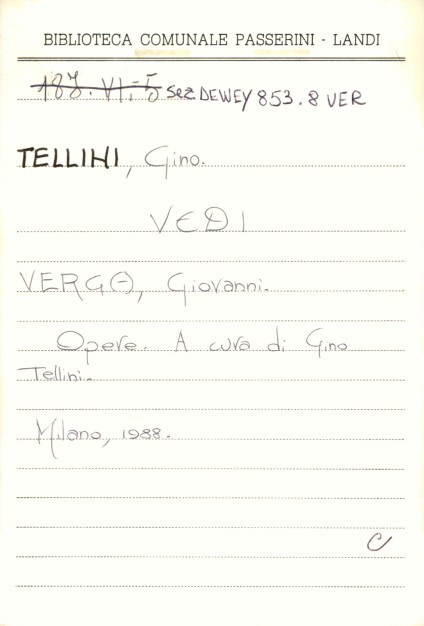 BIBLIOTECA COMUNALE PASSERINI - LANDI
187. VI.-5 sez DEWEY 853.8 VER
TELLINI, Gino.
VEDI
VERGA, Giovanni.
Opere. A cura di Gino
Tellini.
Milano, 1988.
C